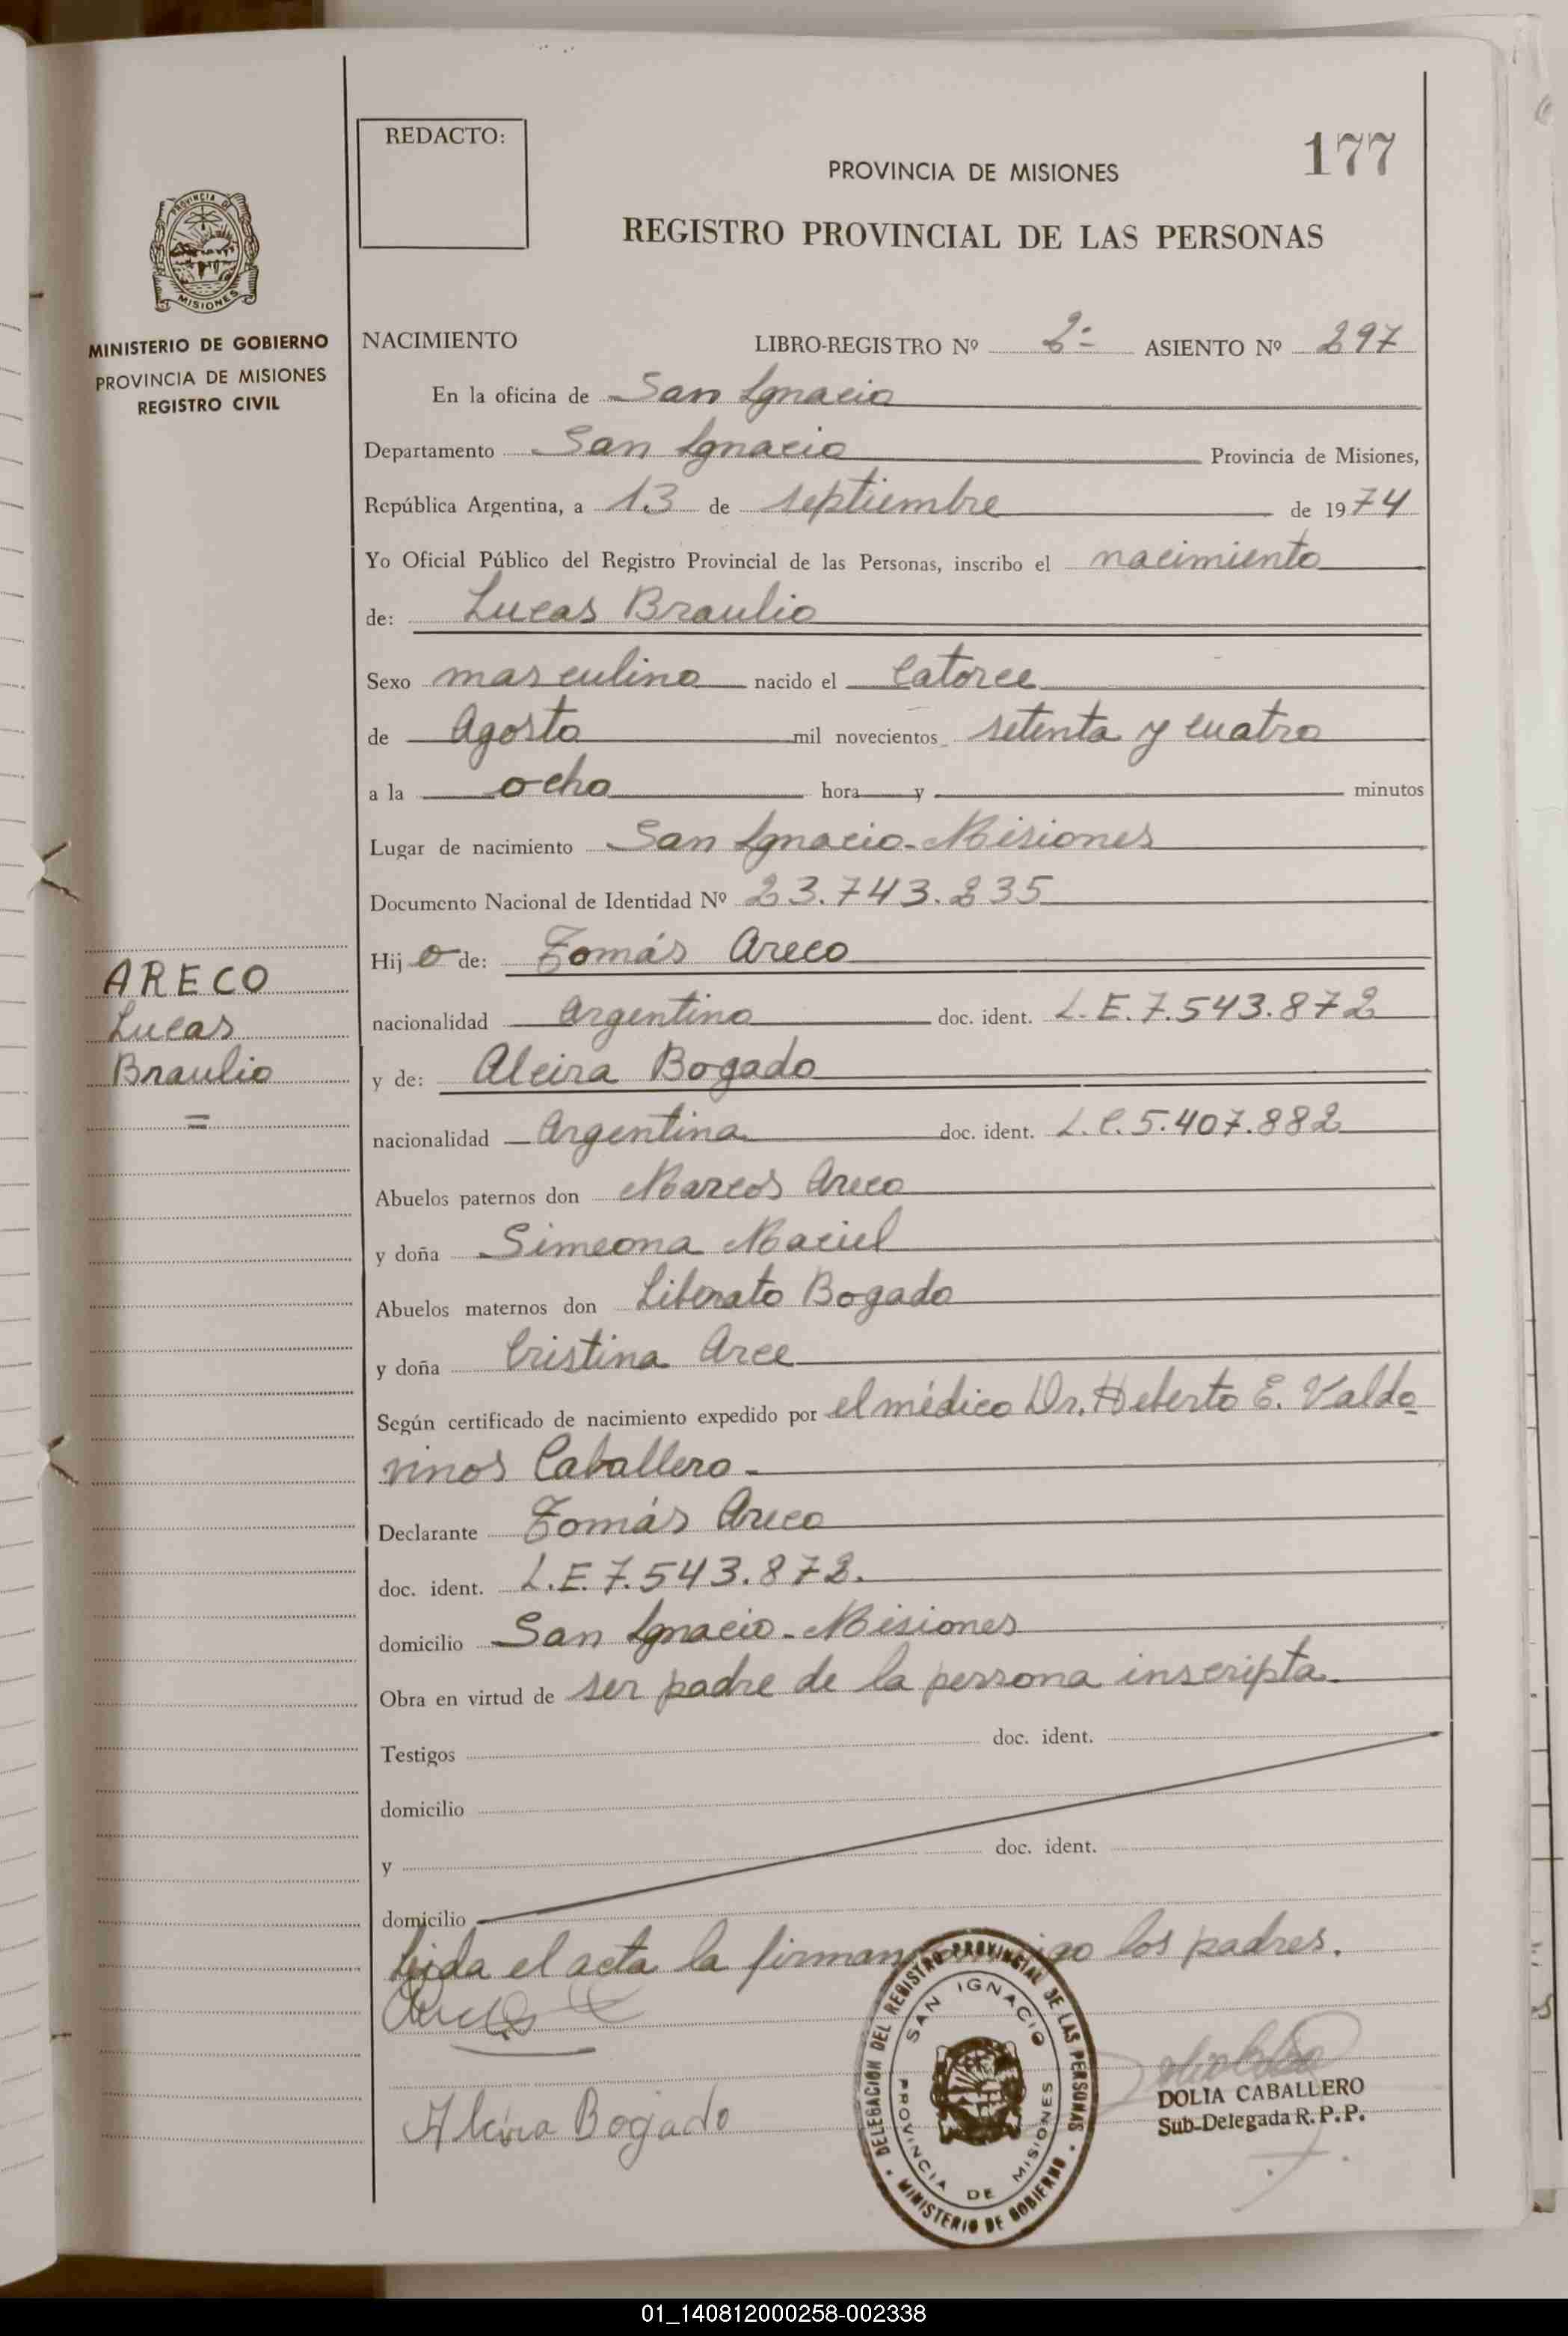 REDACTO:
177
PROVINCIA DE MISIONES
REGISTRO PROVINCIAL DE LAS PERSONAS
PROVINCIA DE
MISIONES
MINISTERIO DE GOBIERNO
PROVINCIA DE MISIONES
REGISTRO CIVIL
NACIMIENTO LIBRO-REGISTRO Nº 2- ASIENTO Nº 297
En la oficina de San Ignacio
Departamento San Ignacio Provincia de Misiones,
República Argentina, a 13 de septiembre de 1974
Yo Oficial Público del Registro Provincial de las Personas, inscribo el nacimiento
de: Lucas Braulio
Sexo masculino nacido el Catorce
de Agosto mil novecientos setenta y cuatro
a la ocho hora y minutos
Lugar de nacimiento San Ignacio-Misiones
Documento Nacional de Identidad Nº 23.743.235
Hijo de: Tomás Areco
ARECO
Lucas
Braulio
=
nacionalidad Argentino doc. ident. L.E.7.543.872
y de: Alcira Bogado
nacionalidad Argentina doc. ident. L.C.5.407.882
Abuelos paternos don Marcos Areco
y doña Simeona Maciel
Abuelos maternos don Liberato Bogado
y doña Cristina Arce
Según certificado de nacimiento expedido por el médico Dr. Heberto E. Valdo
vinos Caballero-
Declarante Tomás Areco
doc. ident. L.E.7.543.872.
domicilio San Ignacio-Misiones
Obra en virtud de ser padre de la persona inscripta.
Testigos doc. ident.
domicilio
y doc. ident.
domicilio
Leida el acta la firman los padres.
Alcira Bogado
DELEGACIÓN DEL REGISTRO PROVINCIAL DE LAS PERSONAS
SAN IGNACIO
PROVINCIA DE MISIONES
MINISTERIO DE GOBIERNO
DOLIA CABALLERO
Sub-Delegada R.P.P.
01_140812000258-002338